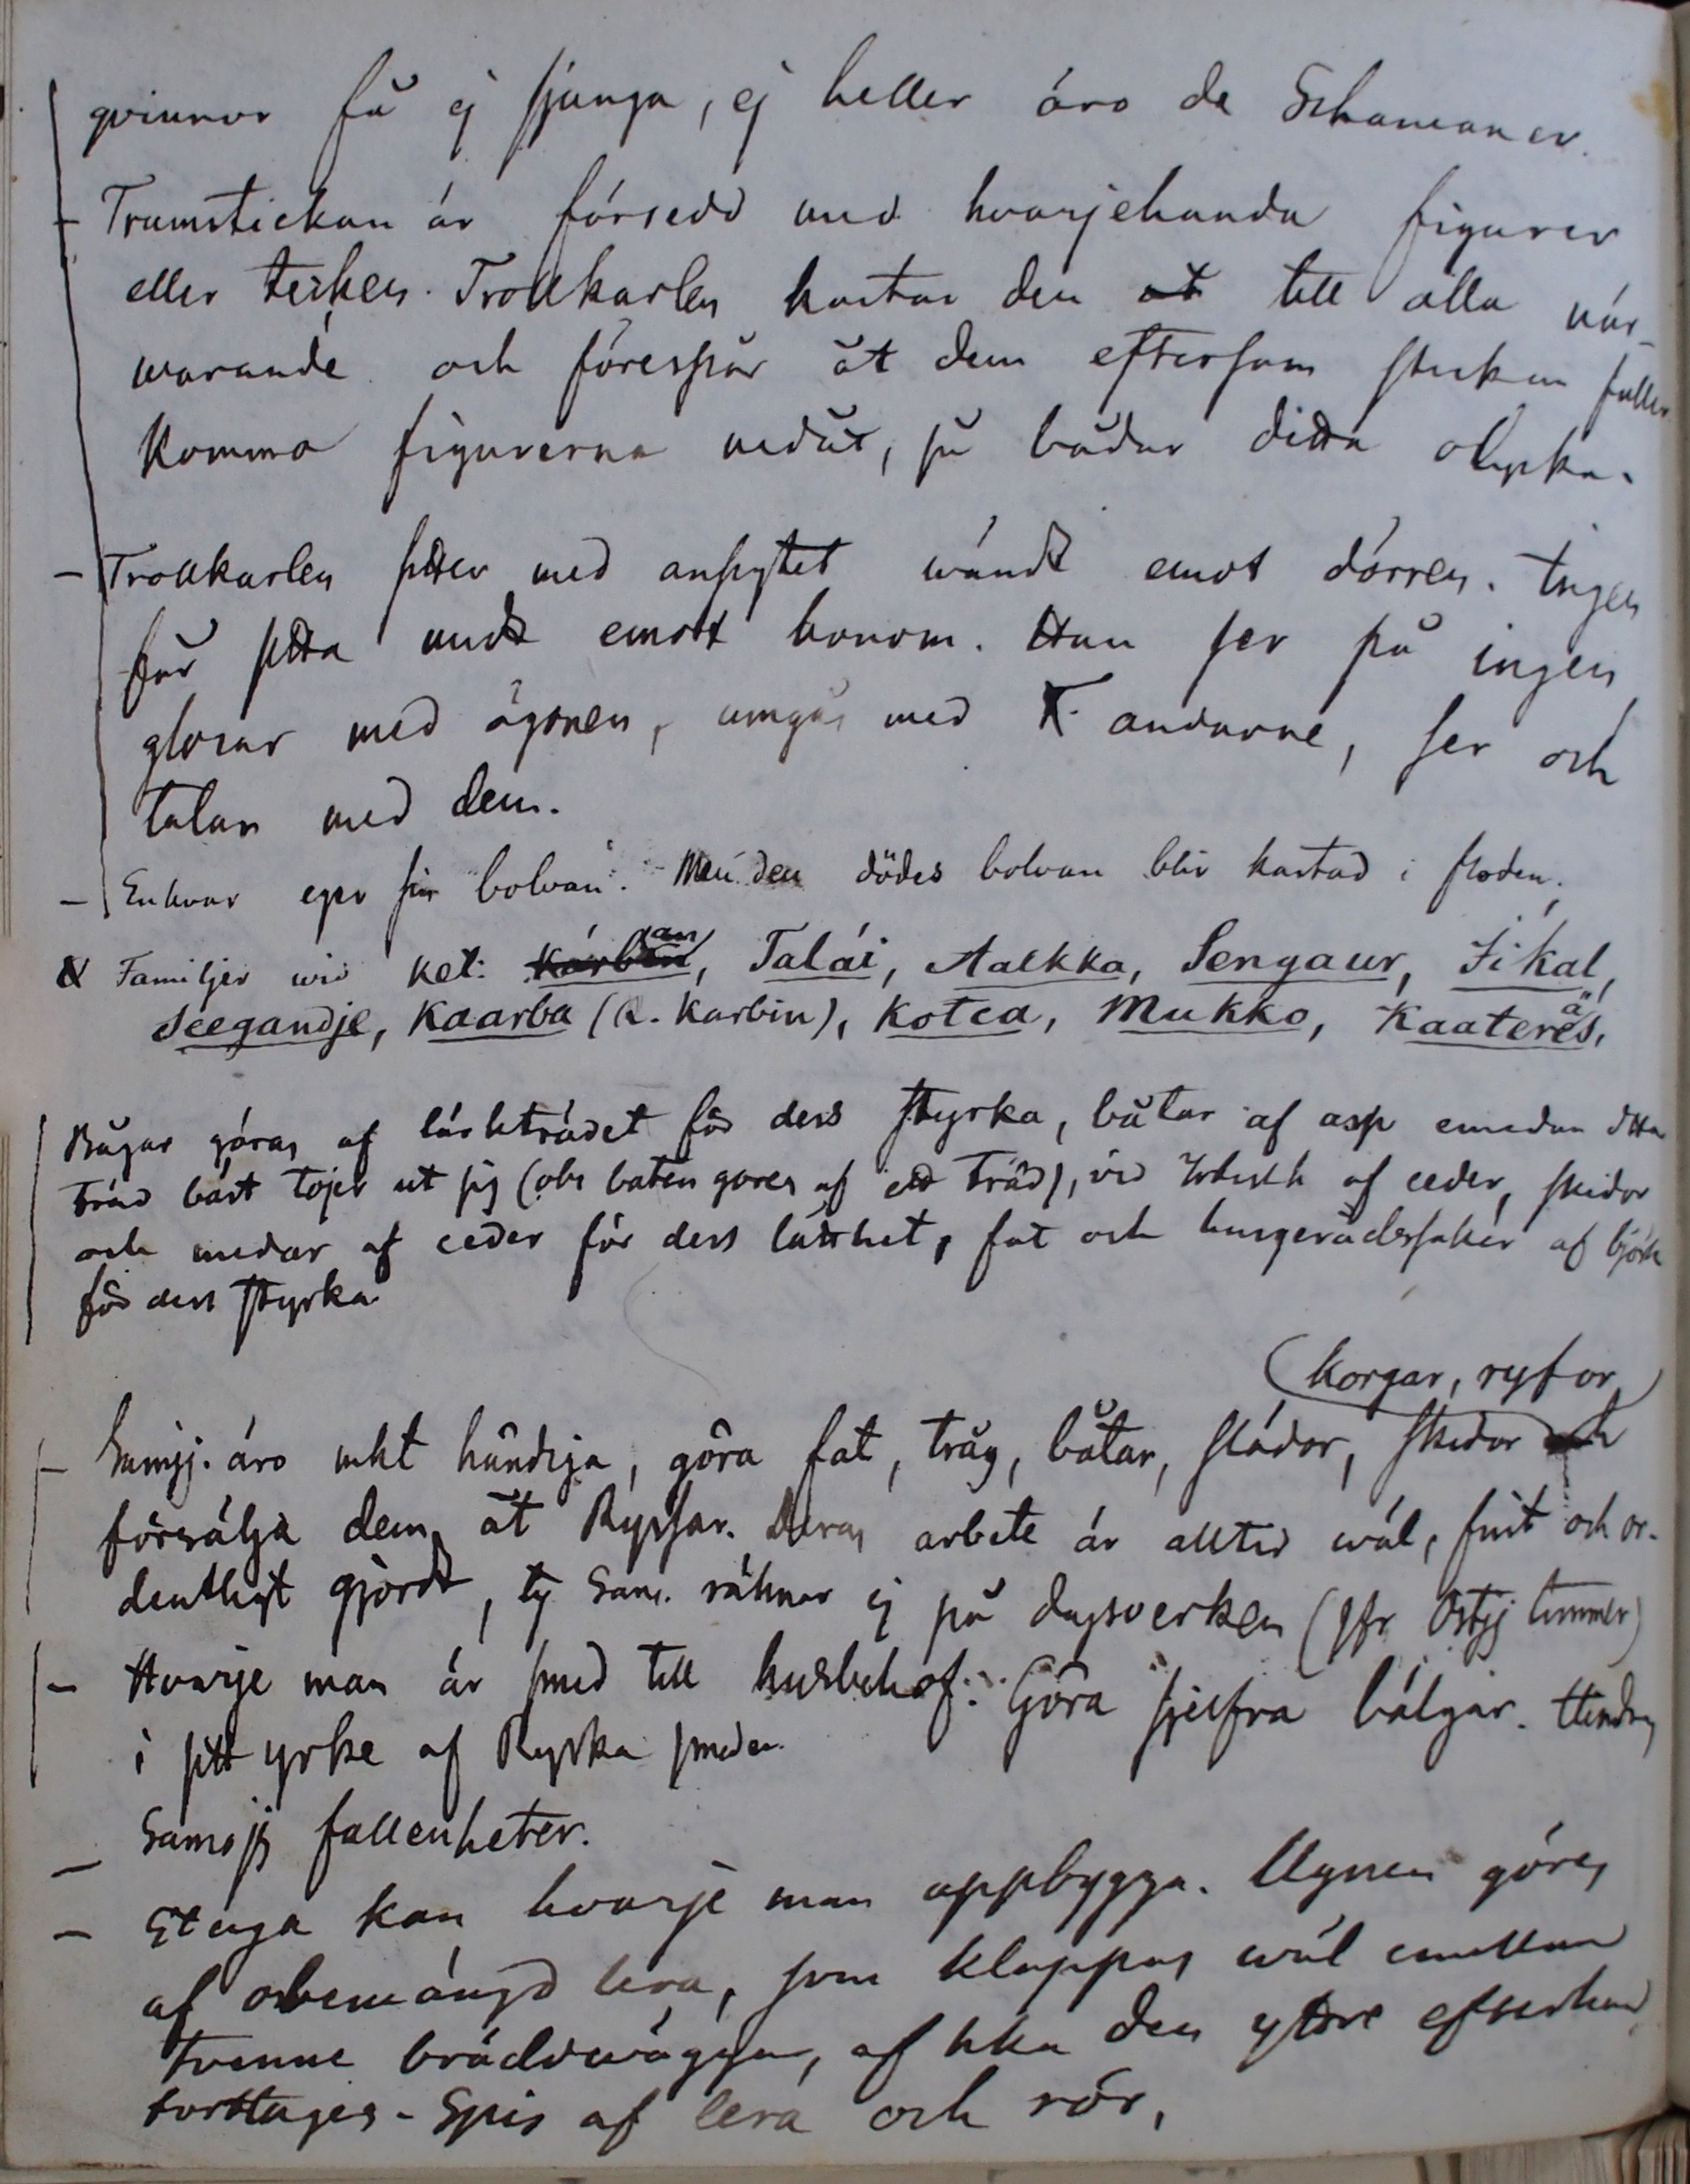 qvinnor få ej sjunga, ej heller äro de Schamaner.
- Trumstickan är försedd med hvarjehanda figurer
eller tecken. Trollkarlen kastar den åt till alla när-
warande och förespår åt dem eftersom stickan faller.
Komma figurerna nedåt, så bådar detta olycka.
- Trollkarlen sitter med ansigtet wändt emot dörren. Ingen
får sitta midt emott honom. Han ser på ingen
glorar med ögonen, umgås med andarne, ser och
talar med dem.
- Enhvar eger sin bolvan. Men den dödes bolvan blir kastad i floden.
Familjer wid Ket: Kárban, Talái, Aalkka, Sengaur, Jíkal,
Seegandje, Kaarba (R. Karbin), Kotca, Mukko, Kaaterés,
ä
Bågar göras af lärkträdet för dess styrka, båtar af asp emedan detta
träd bäst töjer ut sig (obs båten göres af ett träd), vid af ceder, skidor
och medar af ceder för dess lätthet, fat och husgerådssaker af björk
för dess styrka.
korgar, ryssor
- Samoj. äro mkt händiga, göra fat, tråg, båtar, slädor, skidor och
försälja dem åt Ryssar. Deras arbete är alltid wäl, fint och or-
dentligt gjordt, ty Sam. räknar ej på dagsverken (Jfr Ostj timmer)
- Hvarje man är smed till husbehof. Göra sjelfva bälgar. Hindras
i sitt yrke af Ryska smeder.
- Samojs fallenheter.
- Stuga kan hvarje man uppbygga. Ugnen göres
af obemängd lera, som klappas wäl emellan
tvenne brädwäggar, af hka den yttre efterhand
borttages - Spis af lera och rör,